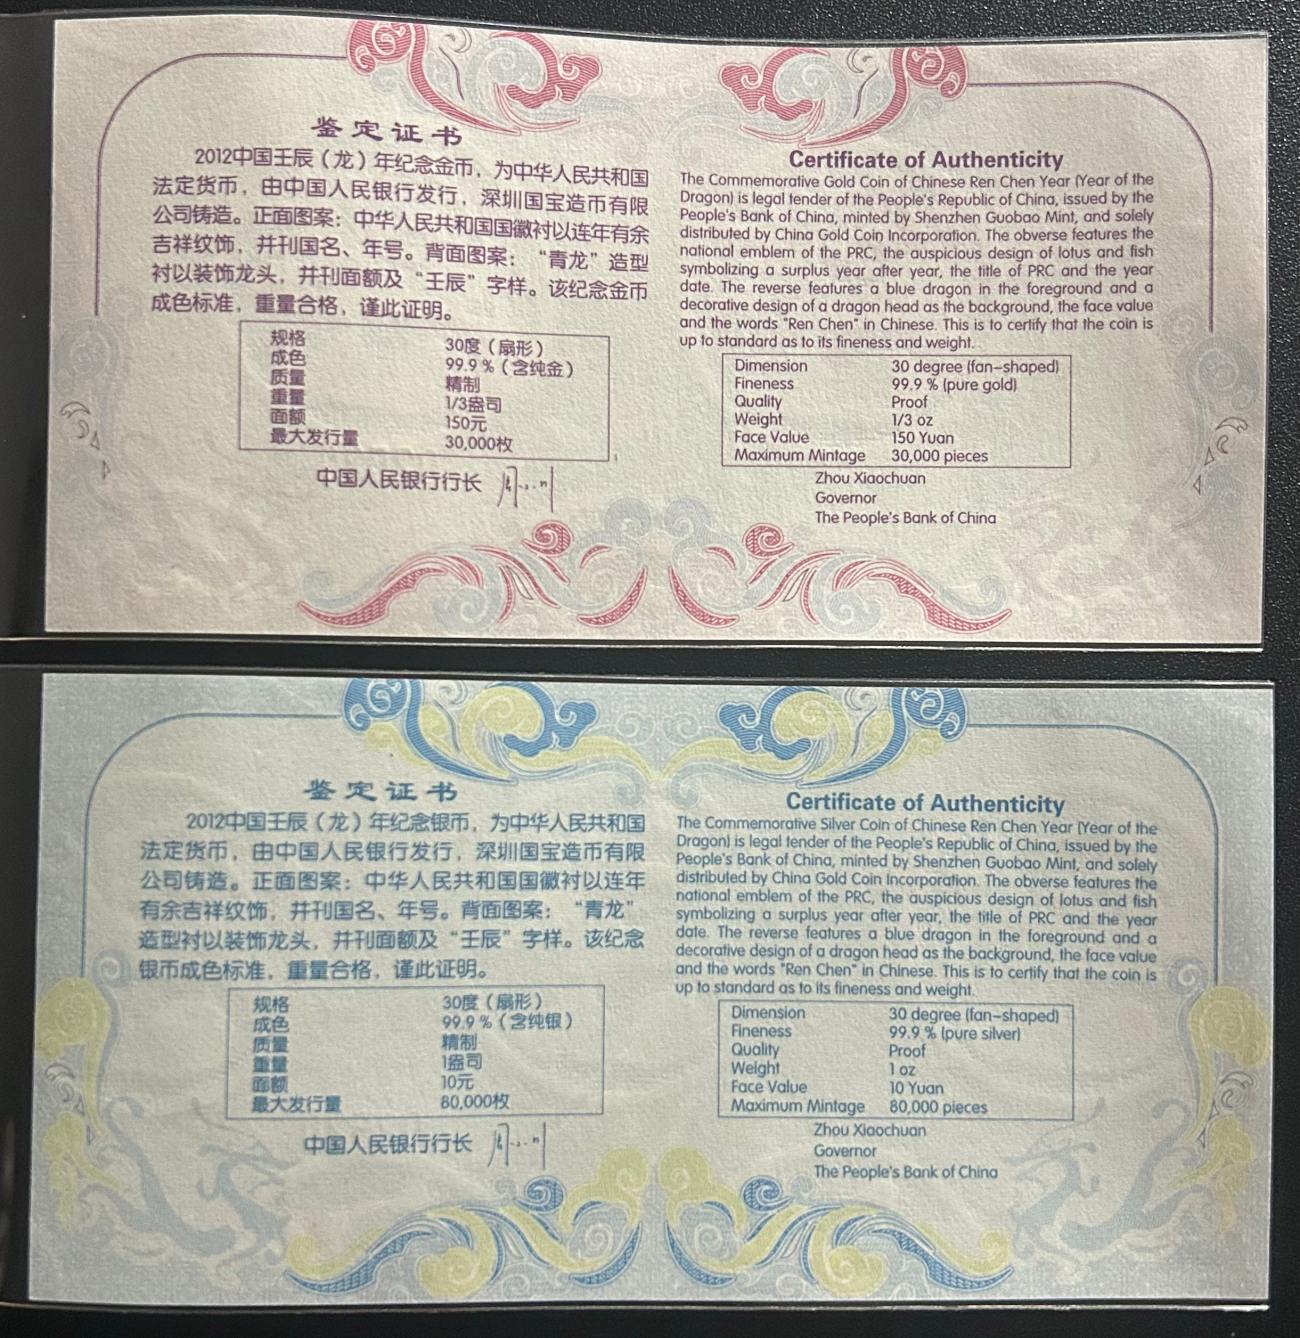 鉴定证书
2012中国壬辰（龙）年纪念金币，为中华人民共和国
法定货币，由中国人民银行发行，深圳国宝造币有限
公司铸造。正面图案：中华人民共和国国徽衬以连年有余
吉祥纹饰，并刊国名、年号。背面图案：“青龙”造型
衬以装饰龙头，并刊面额及“壬辰”字样。该纪念金币
成色标准，重量合格，谨此证明。
规格 30度（扇形）
成色 99.9％（含纯金）
质量 精制
重量 1/3盎司
面额 150元
最大发行量 30,000枚
中国人民银行行长
Certificate of Authenticity
The Commemorative Gold Coin of Chinese Ren Chen Year (Year of the
Dragon) is legal tender of the People's Republic of China, issued by the
People's Bank of China, minted by Shenzhen Guobao Mint, and solely
distributed by China Gold Coin Incorporation. The obverse features the
national emblem of the PRC, the auspicious design of lotus and fish
symbolizing a surplus year after year, the title of PRC and the year
date. The reverse features a blue dragon in the foreground and a
decorative design of a dragon head as the background, the face value
and the words "Ren Chen" in Chinese. This is to certify that the coin is
up to standard as to its fineness and weight.
Dimension 30 degree (fan-shaped)
Fineness 99.9 % (pure gold)
Quality Proof
Weight 1/3 oz
Face Value 150 Yuan
Maximum Mintage 30,000 pieces
Zhou Xiaochuan
Governor
The People's Bank of China
鉴定证书
2012中国壬辰（龙）年纪念银币，为中华人民共和国
法定货币，由中国人民银行发行，深圳国宝造币有限
公司铸造。正面图案：中华人民共和国国徽衬以连年
有余吉祥纹饰，并刊国名、年号。背面图案：“青龙”
造型衬以装饰龙头，并刊面额及“壬辰”字样。该纪念
银币成色标准，重量合格，谨此证明。
规格 30度（扇形）
成色 99.9％（含纯银）
质量 精制
重量 1盎司
面额 10元
最大发行量 80,000枚
中国人民银行行长
Certificate of Authenticity
The Commemorative Silver Coin of Chinese Ren Chen Year (Year of the
Dragon) is legal tender of the People's Republic of China, issued by the
People's Bank of China, minted by Shenzhen Guobao Mint, and solely
distributed by China Gold Coin Incorporation. The obverse features the
national emblem of the PRC, the auspicious design of lotus and fish
symbolizing a surplus year after year, the title of PRC and the year
date. The reverse features a blue dragon in the foreground and a
decorative design of a dragon head as the background, the face value
and the words "Ren Chen" in Chinese. This is to certify that the coin is
up to standard as to its fineness and weight.
Dimension 30 degree (fan-shaped)
Fineness 99.9 % (pure silver)
Quality Proof
Weight 1 oz
Face Value 10 Yuan
Maximum Mintage 80,000 pieces
Zhou Xiaochuan
Governor
The People's Bank of China